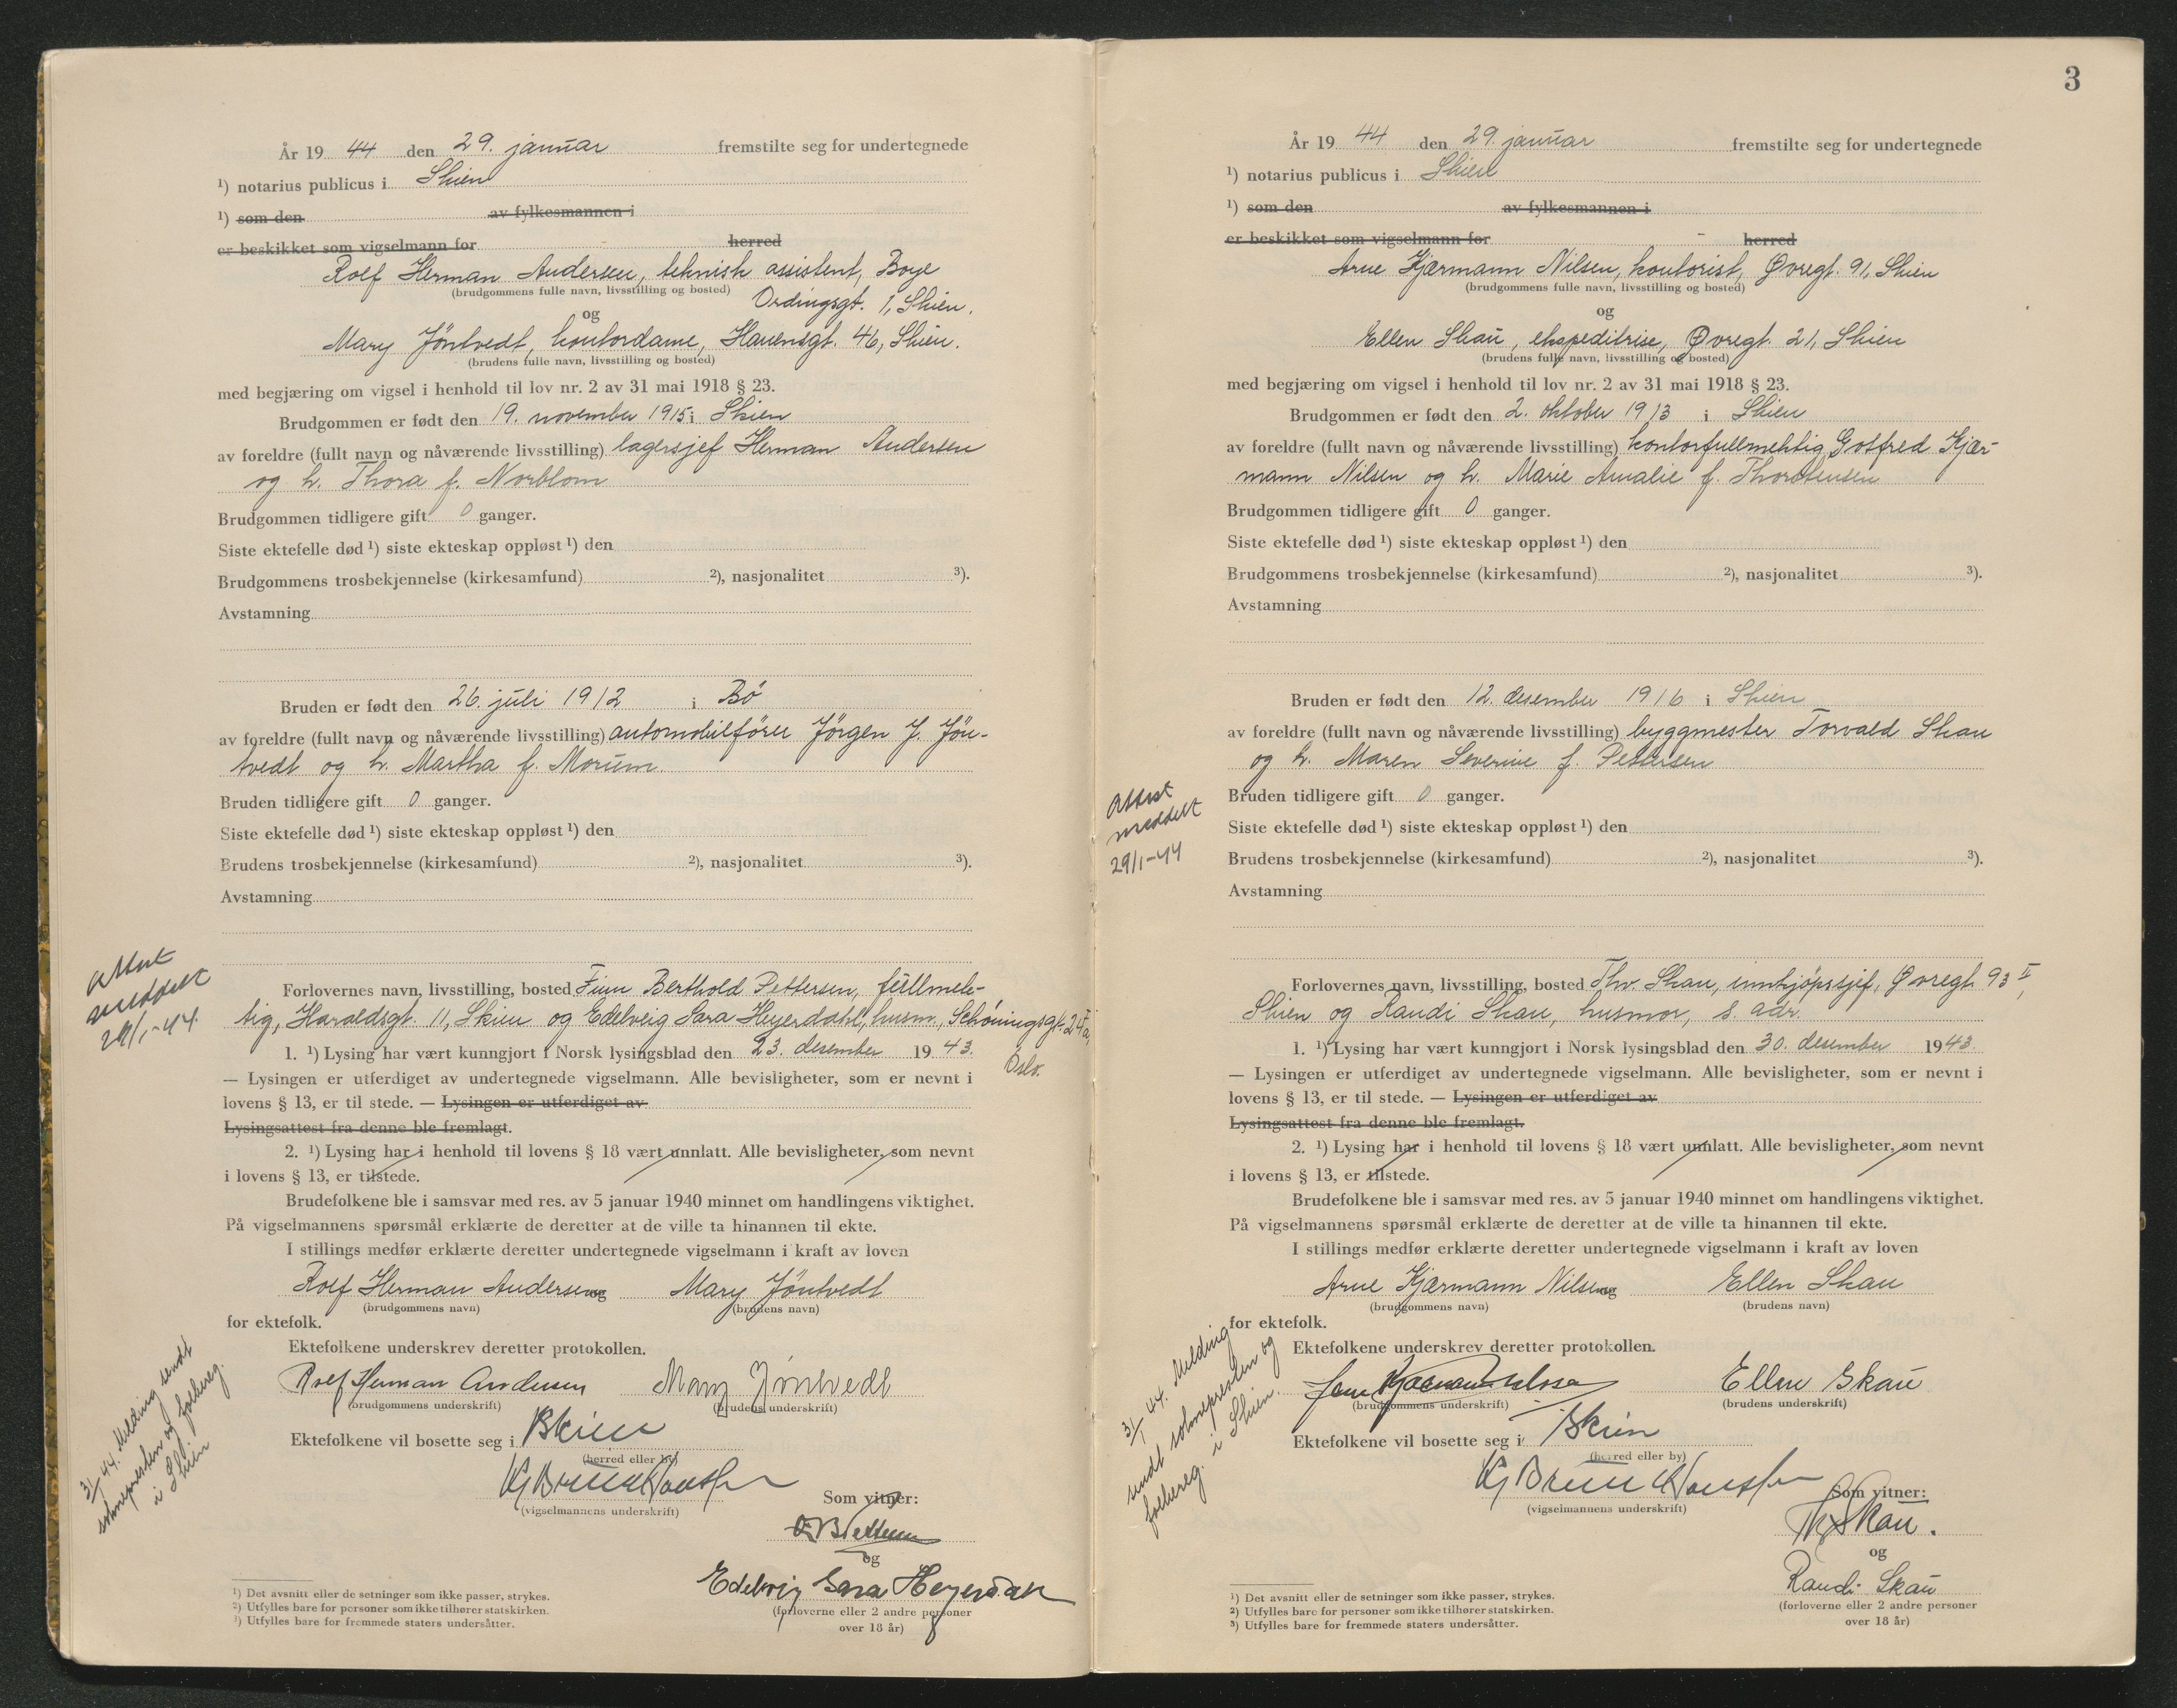 År 19 44 den 29. januar fremstilte seg for undertegnede
¹) notarius publicus i Skien
¹) som den av fylkesmannen i
er beskikket som vigselmann for herred
Rolf Herman Andersen, teknisk assistent, Boye
(brudgommens fulle navn, livsstilling og bosted) Ordingsgt. 1, Skien.
og
Mary Jöntvedt, kontordame, Havensgt. 46, Skien.
(brudens fulle navn, livsstilling og bosted)
med begjæring om vigsel i henhold til lov nr. 2 av 31 mai 1918 § 23.
Brudgommen er født den 19. november 1915 i Skien
av foreldre (fullt navn og nåværende livsstilling) lagersjef Herman Andersen
og h. Thora f. Norblom
Brudgommen tidligere gift 0 ganger.
Siste ektefelle død ¹) siste ekteskap oppløst ¹) den
Brudgommens trosbekjennelse (kirkesamfund) ²), nasjonalitet ³).
Avstamning
Bruden er født den 26. juli 1912 i Bö
av foreldre (fullt navn og nåværende livsstilling) automobilfører Jörgen J. Jön-
tvedt og h. Martha f. Morum
Bruden tidligere gift 0 ganger.
Siste ektefelle død ¹) siste ekteskap oppløst ¹) den
Brudens trosbekjennelse (kirkesamfund) ²), nasjonalitet ³).
Avstamning
Attest
meddelt
29/1-44.
Forlovernes navn, livsstilling, bosted Finn Berthold Pettersen, fullmek-
tig, Haraldsgt. 11, Skien og Edelveig Sara Heyerdahl, husm., Schöningsgt. 24 a,
Oslo.
1. ¹) Lysing har vært kunngjort i Norsk lysingsblad den 23. desember 19 43.
— Lysingen er utferdiget av undertegnede vigselmann. Alle bevisligheter, som er nevnt i
lovens § 13, er til stede. — Lysingen er utferdiget av
Lysingsattest fra denne ble fremlagt.
2. ¹) Lysing har i henhold til lovens § 18 vært unnlatt. Alle bevisligheter, som nevnt
i lovens § 13, er tilstede.
Brudefolkene ble i samsvar med res. av 5 januar 1940 minnet om handlingens viktighet.
På vigselmannens spørsmål erklærte de deretter at de ville ta hinannen til ekte.
I stillings medfør erklærte deretter undertegnede vigselmann i kraft av loven
Rolf Herman Andersen og Mary Jöntvedt
(brudgommens navn) (brudens navn)
for ektefolk.
Ektefolkene underskrev deretter protokollen.
Rolf Herman Andersen Mary Jöntvedt
(brudgommens underskrift) (brudens underskrift)
Ektefolkene vil bosette seg i Skien
(herred eller by)
(vigselmannens underskrift)
31/1 44. Melding sendt
sokneprestem og folkereg.
i Skien
Som vitner:
og
Edelveig Sara Heyerdahl
(forloverne eller 2 andre personer
over 18 år)
¹) Det avsnitt eller de setninger som ikke passer, strykes.
²) Utfylles bare for personer som ikke tilhører statskirken.
³) Utfylles bare for fremmede staters undersåtter.
3
År 19 44 den 29. januar fremstilte seg for undertegnede
¹) notarius publicus i Skien
¹) som den av fylkesmannen i
er beskikket som vigselmann for herred
Arne Kjærmann Nilsen, kontorist, Øvregt. 91, Skien
(brudgommens fulle navn, livsstilling og bosted)
og
Ellen Skau, ekspeditrise, Øvregt. 21, Skien
(brudens fulle navn, livsstilling og bosted)
med begjæring om vigsel i henhold til lov nr. 2 av 31 mai 1918 § 23.
Brudgommen er født den 2. oktober 1913 i Skien
av foreldre (fullt navn og nåværende livsstilling) kontorfullmektig Gotfred Kjær-
mann Nilsen og h. Marie Amalie f. Thorstensen
Brudgommen tidligere gift 0 ganger.
Siste ektefelle død ¹) siste ekteskap oppløst ¹) den
Brudgommens trosbekjennelse (kirkesamfund) ²), nasjonalitet ³).
Avstamning
Bruden er født den 12. desember 1916 i Skien
av foreldre (fullt navn og nåværende livsstilling) byggmester Torvald Skau
og h. Maren Severine f. Pettersen
Attest
meddelt
29/1-44
Bruden tidligere gift 0 ganger.
Siste ektefelle død ¹) siste ekteskap oppløst ¹) den
Brudens trosbekjennelse (kirkesamfund) ²), nasjonalitet ³).
Avstamning
Forlovernes navn, livsstilling, bosted Thv. Skau, innkjöpssjef, Øvregt. 93 II,
Skien og Randi Skau, husmor, s. adr.
1. ¹) Lysing har vært kunngjort i Norsk lysingsblad den 30. desember 19 43.
— Lysingen er utferdiget av undertegnede vigselmann. Alle bevisligheter, som er nevnt i
lovens § 13, er til stede. — Lysingen er utferdiget av
Lysingsattest fra denne ble fremlagt.
2. ¹) Lysing har i henhold til lovens § 18 vært unnlatt. Alle bevisligheter, som nevnt
i lovens § 13, er tilstede.
Brudefolkene ble i samsvar med res. av 5 januar 1940 minnet om handlingens viktighet.
På vigselmannens spørsmål erklærte de deretter at de ville ta hinannen til ekte.
I stillings medfør erklærte deretter undertegnede vigselmann i kraft av loven
Arne Kjærmann Nilsen og Ellen Skau
(brudgommens navn) (brudens navn)
for ektefolk.
Ektefolkene underskrev deretter protokollen.
Ellen Skau
(brudgommens underskrift) (brudens underskrift)
Ektefolkene vil bosette seg i Skien
(herred eller by)
(vigselmannens underskrift)
31/1 44. Melding
sendt sokneprestem og
folkereg. i Skien.
Som vitner:
Thv Skau.
og
Randi Skau
(forloverne eller 2 andre personer
over 18 år)
¹) Det avsnitt eller de setninger som ikke passer, strykes.
²) Utfylles bare for personer som ikke tilhører statskirken.
³) Utfylles bare for fremmede staters undersåtter.